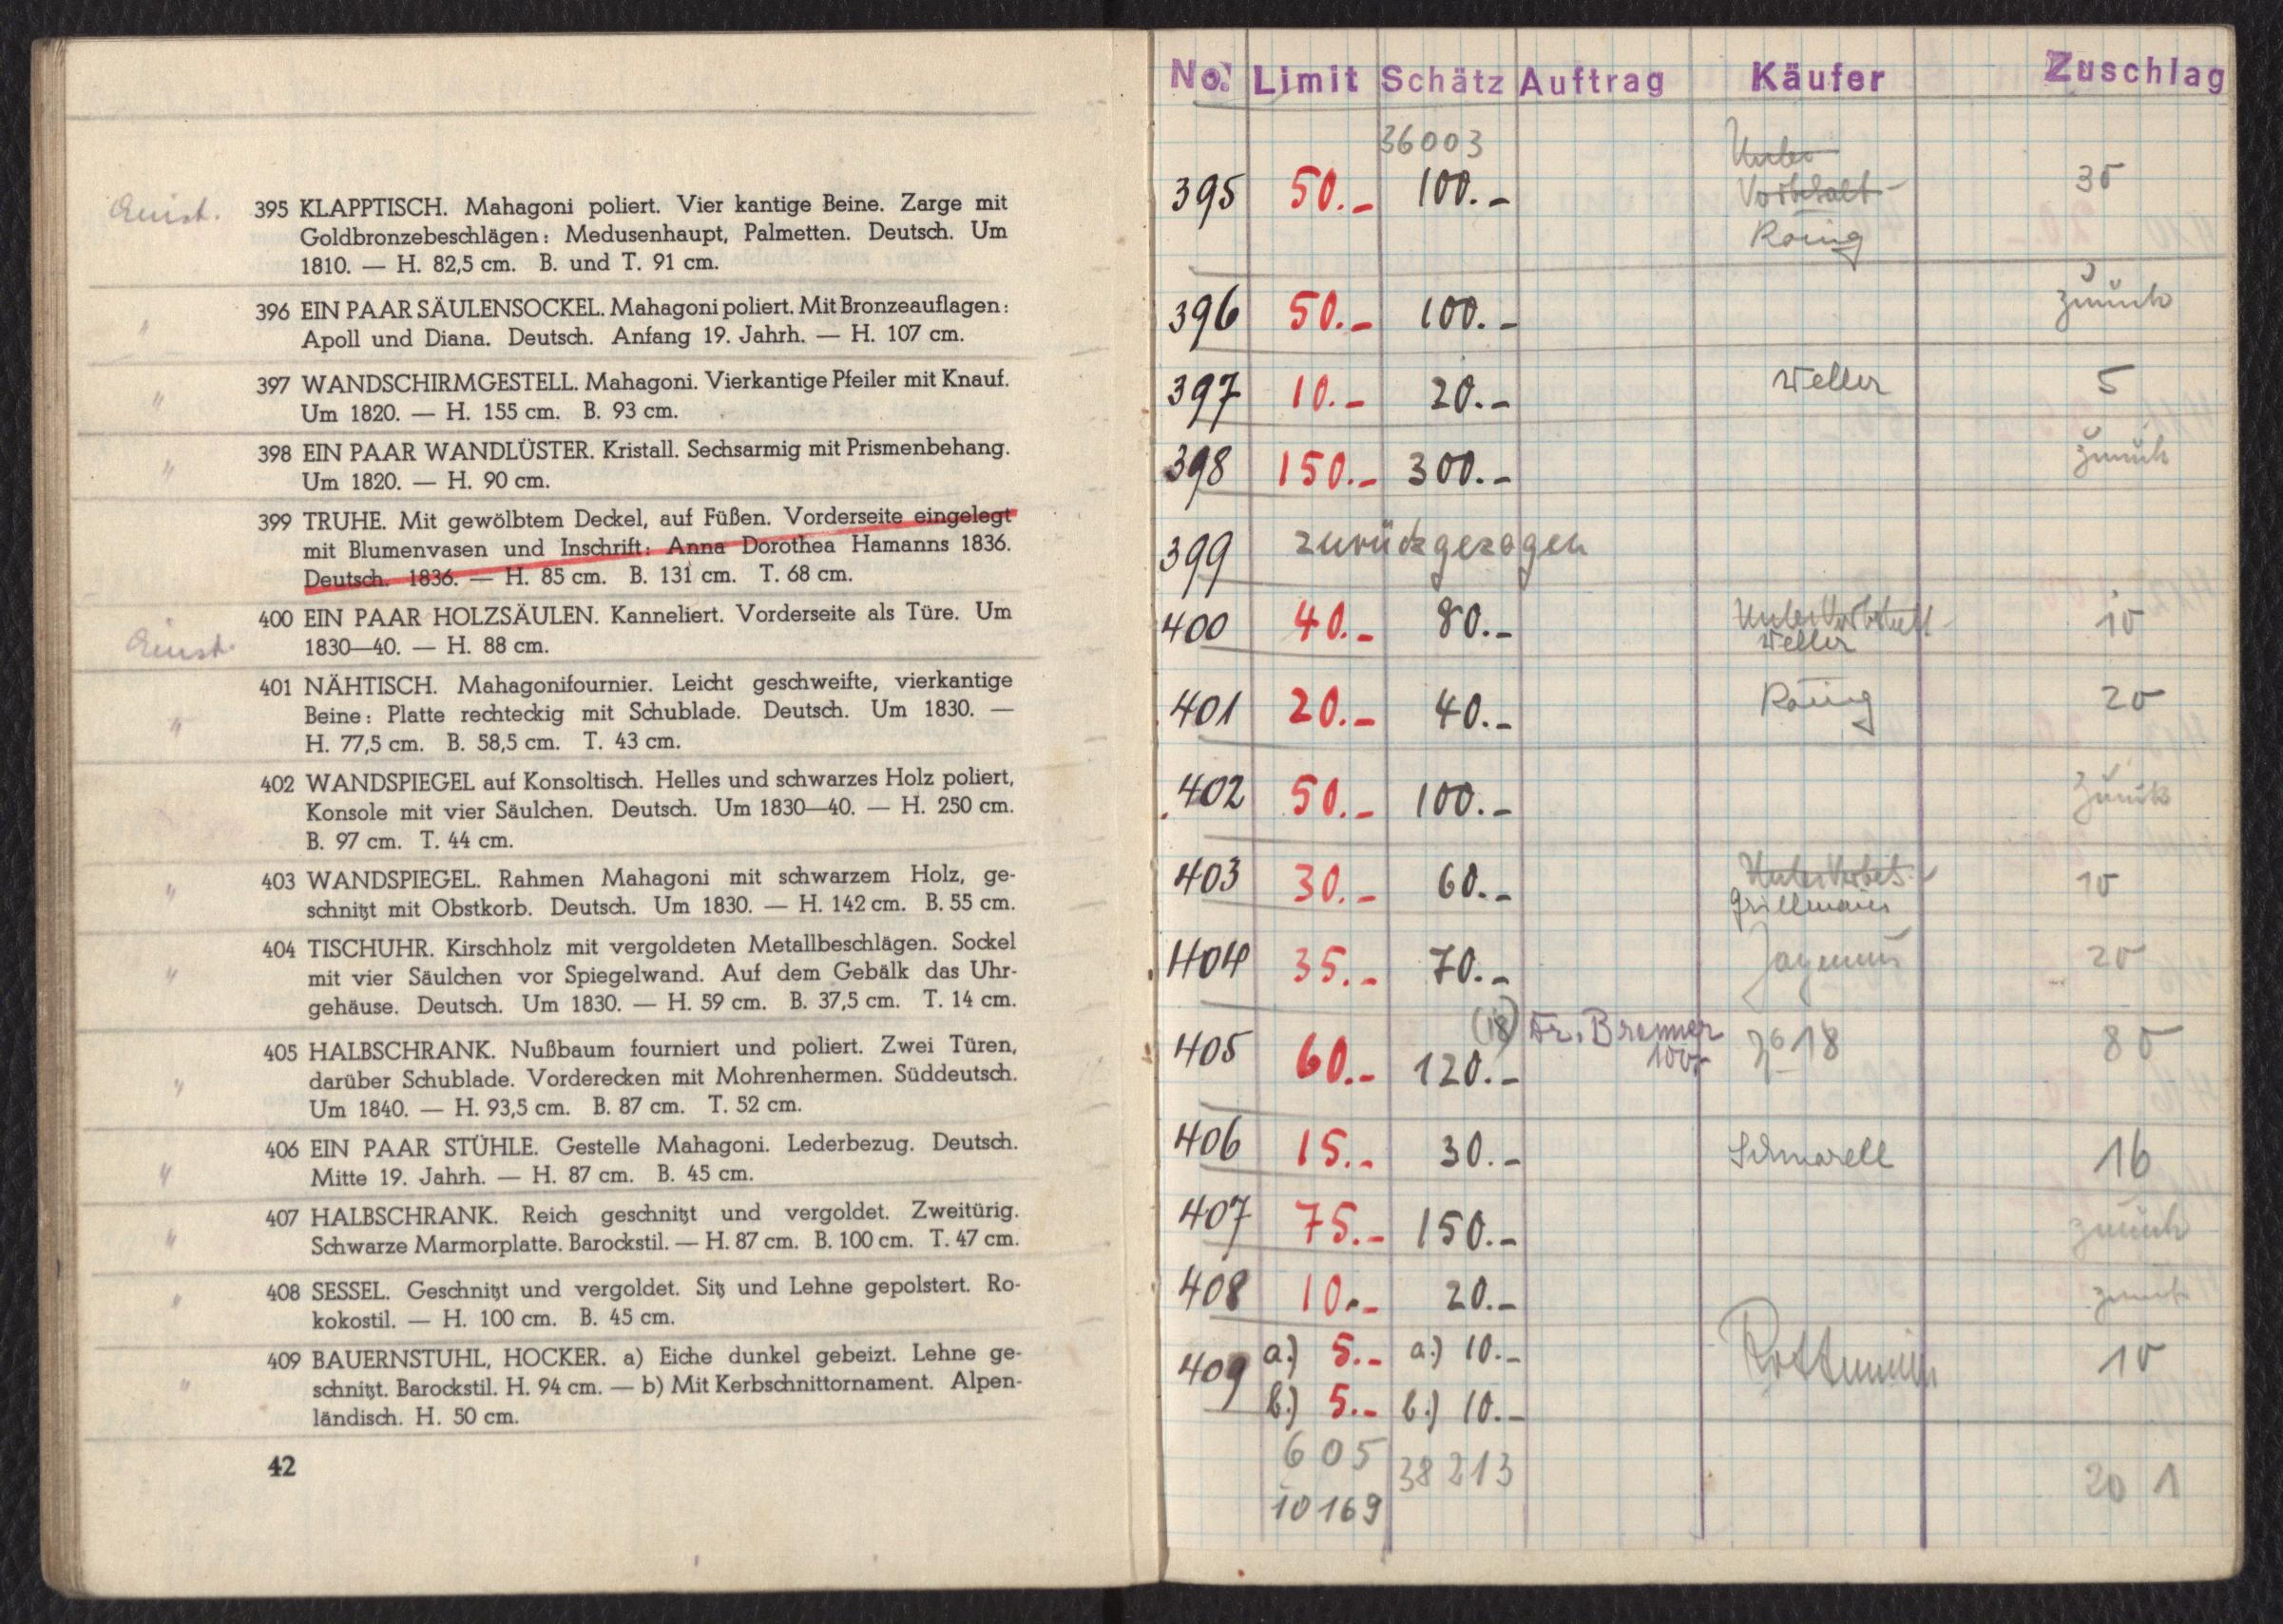 Einst. 395 KLAPPTISCH. Mahagoni poliert. Vier kantige Beine. Zarge mit
Goldbronzebeschlägen: Medusenhaupt, Palmetten. Deutsch. Um
1810. — H. 82,5 cm. B. und T. 91 cm.
" 396 EIN PAAR SÄULENSOCKEL. Mahagoni poliert. Mit Bronzeauflagen:
Apoll und Diana. Deutsch. Anfang 19. Jahrh. — H. 107 cm.
" 397 WANDSCHIRMGESTELL. Mahagoni. Vierkantige Pfeiler mit Knauf.
Um 1820. — H. 155 cm. B. 93 cm.
" 398 EIN PAAR WANDLÜSTER. Kristall. Sechsarmig mit Prismenbehang.
Um 1820. — H. 90 cm.
399 TRUHE. Mit gewölbtem Deckel, auf Füßen. Vorderseite eingelegt
mit Blumenvasen und Inschrift: Anna Dorothea Hamanns 1836.
Deutsch. 1836. — H. 85 cm. B. 131 cm. T. 68 cm.
400 EIN PAAR HOLZSÄULEN. Kanneliert. Vorderseite als Türe. Um
Einst. 1830—40. — H. 88 cm.
401 NÄHTISCH. Mahagonifournier. Leicht geschweifte, vierkantige
" Beine: Platte rechteckig mit Schublade. Deutsch. Um 1830. —
H. 77,5 cm. B. 58,5 cm. T. 43 cm.
402 WANDSPIEGEL auf Konsoltisch. Helles und schwarzes Holz poliert,
Konsole mit vier Säulchen. Deutsch. Um 1830—40. — H. 250 cm.
B. 97 cm. T. 44 cm.
" 403 WANDSPIEGEL. Rahmen Mahagoni mit schwarzem Holz, ge-
schnitzt mit Obstkorb. Deutsch. Um 1830. — H. 142 cm. B. 55 cm.
404 TISCHUHR. Kirschholz mit vergoldeten Metallbeschlägen. Sockel
" mit vier Säulchen vor Spiegelwand. Auf dem Gebälk das Uhr-
gehäuse. Deutsch. Um 1830. — H. 59 cm. B. 37,5 cm. T. 14 cm.
405 HALBSCHRANK. Nußbaum fourniert und poliert. Zwei Türen,
" darüber Schublade. Vorderecken mit Mohrenhermen. Süddeutsch.
Um 1840. — H. 93,5 cm. B. 87 cm. T. 52 cm.
406 EIN PAAR STÜHLE. Gestelle Mahagoni. Lederbezug. Deutsch.
" Mitte 19. Jahrh. — H. 87 cm. B. 45 cm.
407 HALBSCHRANK. Reich geschnitzt und vergoldet. Zweitürig.
" Schwarze Marmorplatte. Barockstil. — H. 87 cm. B. 100 cm. T. 47 cm.
" 408 SESSEL. Geschnitzt und vergoldet. Sitz und Lehne gepolstert. Ro-
kokostil. — H. 100 cm. B. 45 cm.
409 BAUERNSTUHL, HOCKER. a) Eiche dunkel gebeizt. Lehne ge-
" schnitzt. Barockstil. H. 94 cm. — b) Mit Kerbschnittornament. Alpen-
ländisch. H. 50 cm.
42
No. Limit Schätz Auftrag Käufer Zuschlag
36003 Unter
395 50.- 100.- Vorbehalt 35
König
396 50.- 100.- zurück
397 10.- 20.- Weller 5
398 150.- 300.- zurück
399 zurückgezogen
400 40.- 80.- Unter Vorbehalt 10
Weller
401 20.- 40.- König 20
402 50.- 100.- zurück
403 30.- 60.- Unter Vorbeh. 10
Grillmaier
404 35.- 70.- 20
(18) Dr. Brenner
405 60.- 120.- 100,- No 18 80
406 15.- 30.- 16
407 75.- 150.- zurück
408 10.- 20.- zurück
409 a.) 5.- a.) 10.- 10
b.) 5.- b.) 10.-
605 38213 201
10169